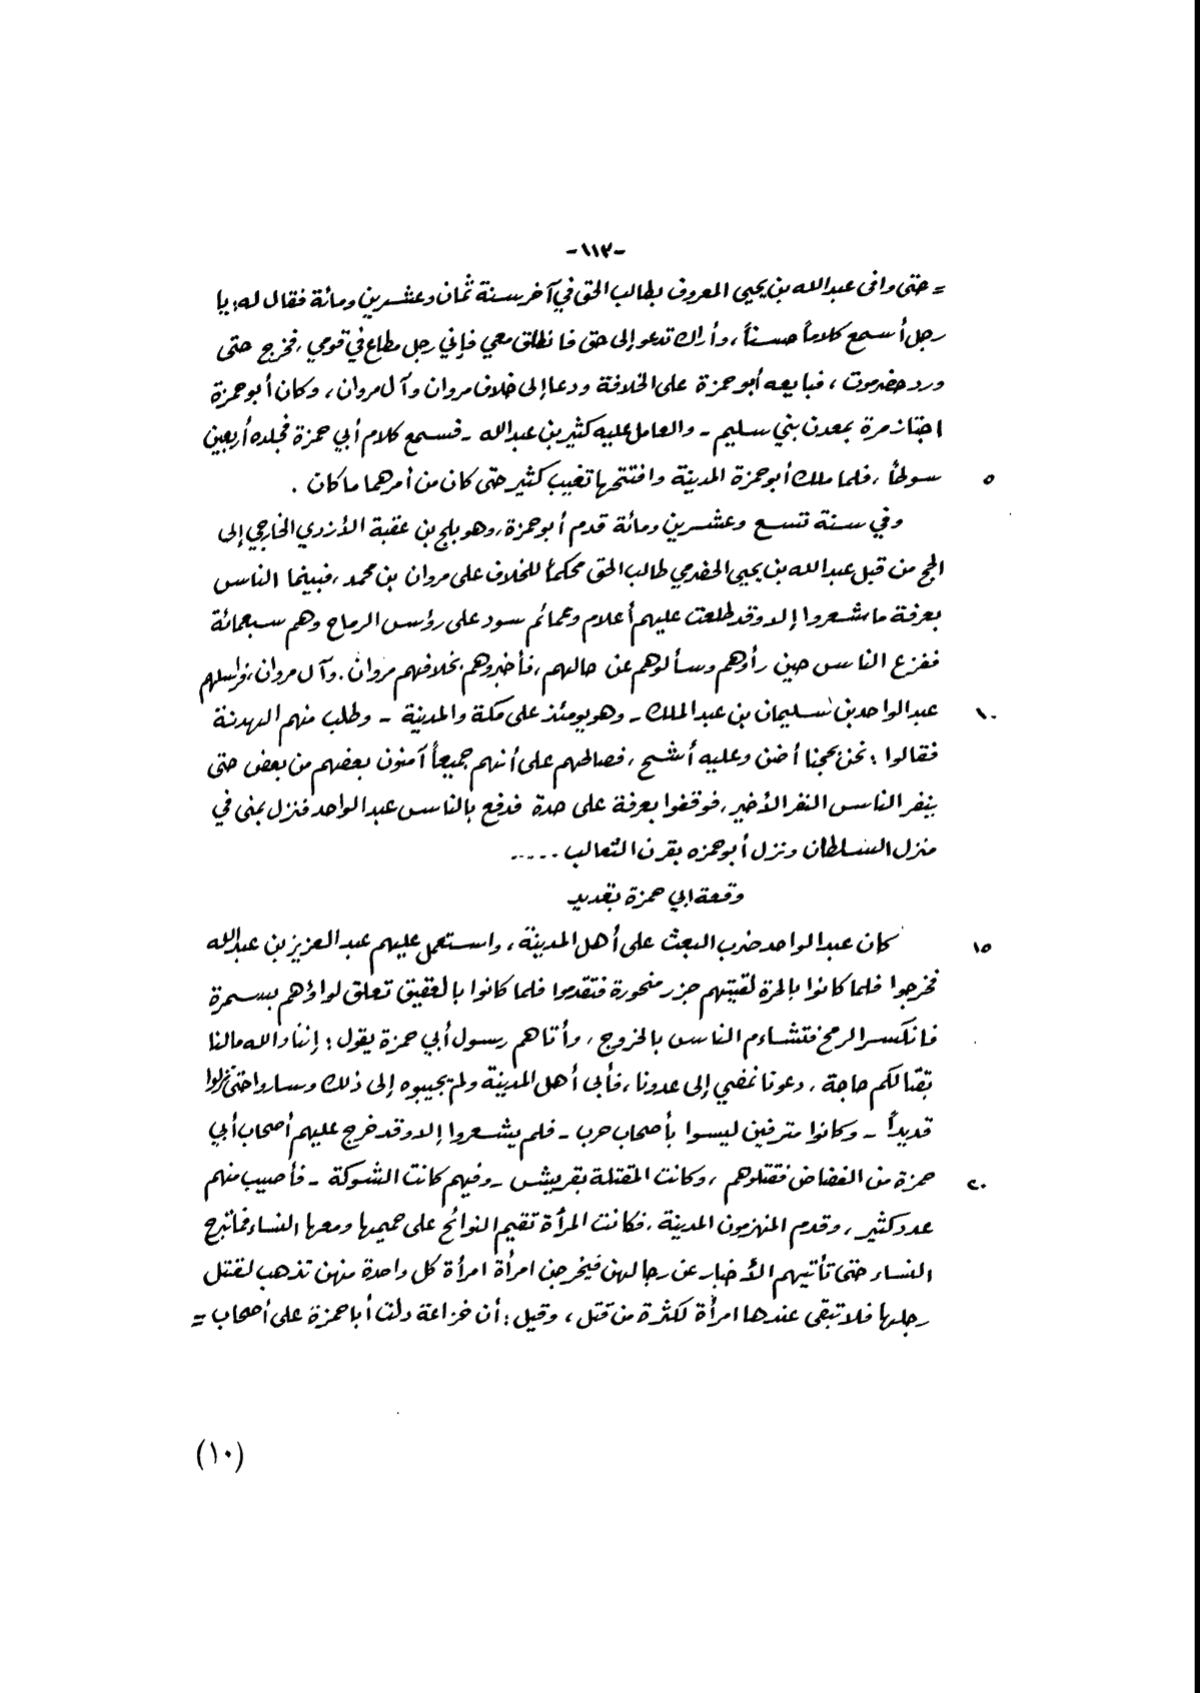 -١١٣-
= حتى وافى عبدالله بن يحيى المعروف بطالب الحق في آخر سنة ثمان وعشرين ومائة فقال له: يا
رجل أسمع كلاماً حسناً، وأراك تدعو إلى حق فانطلق معي فإني رجل مطاع في قومي، فخرج حتى
ورد حضرموت، فبايعه أبو حمزة على الخلافة ودعا إلى خلاف مروان وآل مروان، وكان أبو حمزة
اجتاز مرة بمعدن بني سليم - والعامل عليه كثير بن عبدالله - فسمع كلام أبي حمزة فجلده أربعين
٥ سوطاً، فلما ملك أبو حمزة المدينة وافتتحها تغيب كثير حتى كان من أمرهما ما كان .
وفي سنة تسع وعشرين ومائة قدم أبو حمزة، وهو بلج بن عقبة الأزدي الخارجي إلى
الحج من قبل عبدالله بن يحيى الحضرمي طالب الحق محكماً للخلاف على مروان بن محمد، فبينما الناس
بعرفة ما شعروا إلا وقد طلعت عليهم أعلام وعمائم سود على رؤس الرماح وهم سبعمائة
ففزع الناس حين رأوهم وسألوهم عن حالهم، فأخبروهم بخلافهم مروان. وآل مروان، فراسلهم
١٠ عبدالواحد بن سليمان بن عبدالملك - وهو يومئذ على مكة والمدينة - وطلب منهم الهدنة
فقالوا: نحن بحجنا أضن وعليه أشح، فصالحهم على أنهم جميعاً آمنون بعضهم من بعض حتى
ينفر الناس النفر الأخير، فوقفوا بعرفة على حدة فدفع بالناس عبدالواحد فنزل بمنى في
منزل السلطان ونزل أبو حمزه بقرن الثعالب .....
وقعة ابي حمزة بقديد
١٥ كان عبدالواحد ضرب البعث على أهل المدينة، واستعمل عليهم عبدالعزيز بن عبدالله
فخرجوا فلما كانوا بالحرة لقيتهم جزر منحورة فتقدموا فلما كانوا بالعقيق تعلق لواؤهم بسمرة
فانكسر الرمح فتشاءم الناس بالخروج، وأتاهم رسول أبي حمزة يقول: إننا والله ما لنا
بقتالكم حاجة، دعونا نمضي إلى عدونا، فأبى أهل المدينة ولم يجيبوه إلى ذلك وساروا حتى نزلوا
قديداً - وكانوا مترفين ليسوا بأصحاب حرب - فلم يشعروا إلا وقد خرج عليهم أصحاب أبي
٢٠ حمزة من الغضاض فقتلوهم، وكانت المقتلة بقريش - وفيهم كانت الشوكة - فأصيب منهم
عدد كثير، وقدم المنهزمون المدينة، فكانت المرأة تقيم النوائح على حميمها ومعها النساء فما تبرح
النساء حتى تأتيهم الأخبار عن رجالهن فيخرجن امرأة امرأة كل واحدة منهن تذهب لقتل
رجلها فلا تبقى عندها امرأة لكثرة من قتل، وقيل: أن خزاعة دلت أبا حمزة على أصحاب =
(١٠)